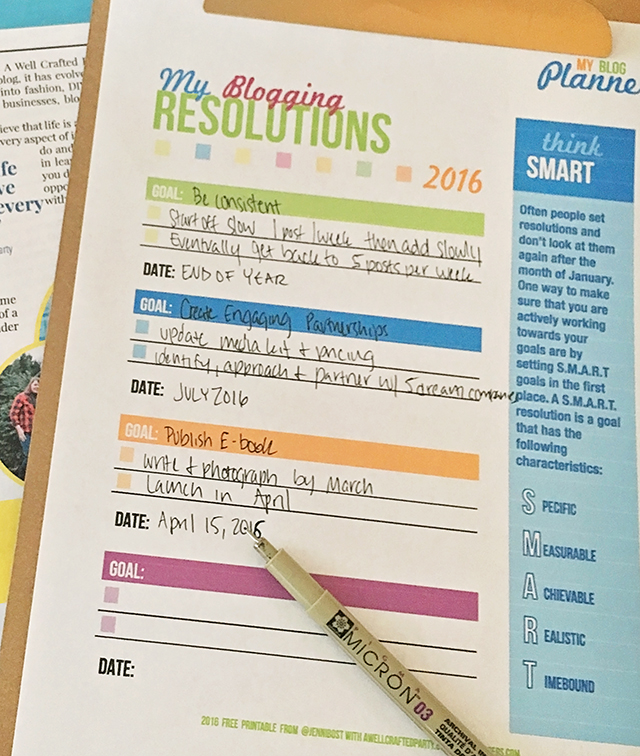 A Well Crafted
blog, it has evolv
into fashion, DI
businesses, blo
ieve that life is
very aspect of
do and
in lea
you d
oppo
with
fe
ve
every
arty
me
of a
der
MY BLOG
Planne
My Blogging
RESOLUTIONS
2016
GOAL: Be consistent
Start off slow 1 post/week then add slowly
Eventually get back to 5 posts per week
DATE: END OF YEAR
GOAL: Create Engaging Partnerships
update media kit + pricing
identify, approach + partner w/ 5 dream companies
DATE: JULY 2016
GOAL: Publish E-book
write + photograph by March
Launch in April
DATE: April 15, 2016
GOAL:
DATE:
think
SMART
Often people set
resolutions and
don't look at them
again after the
month of January.
One way to make
sure that you are
actively working
towards your
goals are by
setting S.M.A.R.T
goals in the first
place. A S.M.A.R.T.
resolution is a goal
that has the
following
characteristics:
S PECIFIC
M EASURABLE
A CHIEVABLE
R EALISTIC
T IMEBOUND
MICRON 03
ARCHIVAL IN
QUALITÉ D'A
TINTA DE
2016 FREE PRINTABLE FROM @JENNIBOST WITH AWELLCRAFTEDPARTY.
ERS.COM